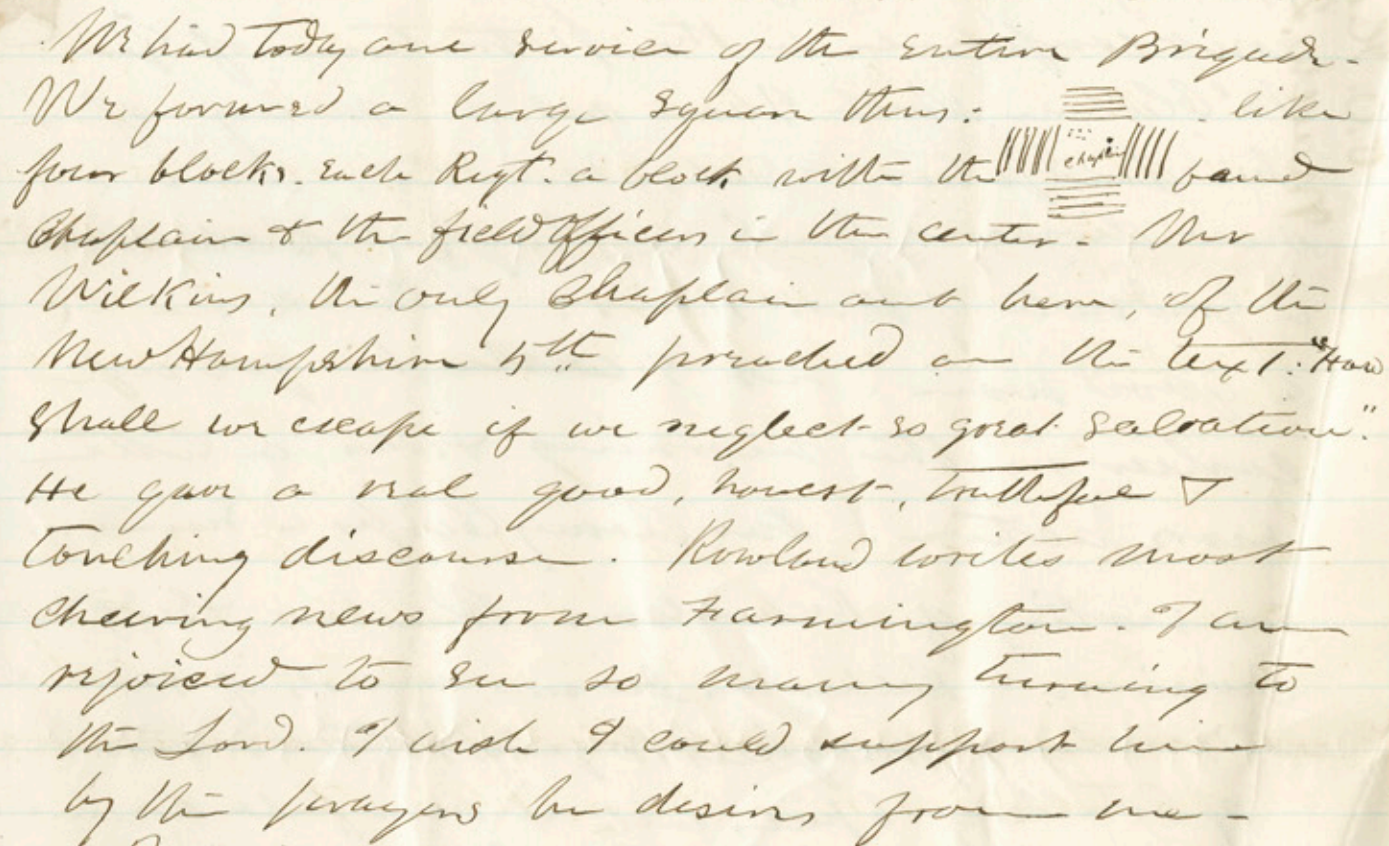 We had today one service of the entire Brigade.
We formed a large square thus: like
chaplain
four blocks. each Regt. a block with the band
Chaplain & the field Officers in the center. Mr
Wilkins, the only Chaplain out here, of the
New Hampshire 5th preached on the text: "How
shall we escape if we neglect so great salvation".
He gave a real good, honest, truthful &
touching discourse. Rowland writes most
cheering news from Farmington. I am
rejoiced to see so many turning to
the Lord. I wish I could support him
by the prayers he desires from me -